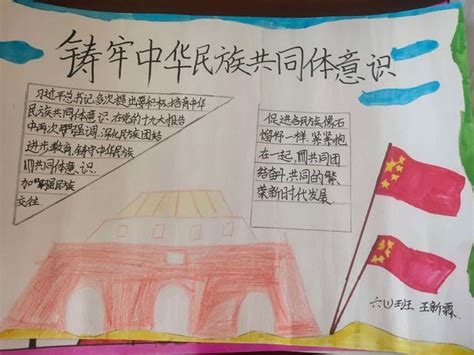 铸牢中华民族共同体意识
习近平总书记多次提出要积极培育中华
民族共同体意识,在党的十九大报告
中再次强调,深化民族团结
进步教育,铸牢中华民族
共同体意识.
加强民族
交往
促进各民族像石
榴籽一样,紧紧抱
在一起,共同团
结奋斗,共同的繁
荣新时代发展.
六(1)班 王新霖